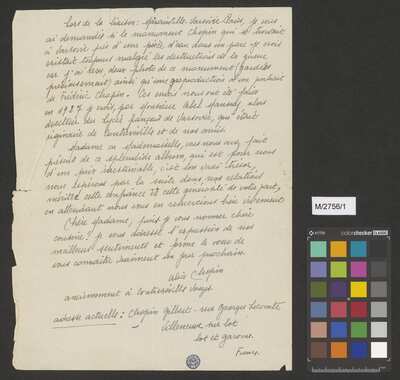 Lors de la liaison: Marainville. Varsovie. Paris, je vous
ai demandée si le monument Chopin qui se trouvait
à Varsovie près d'une pièce d'eau dans un parc y
existait toujours malgré les destructions de la guerre
car j'ai les deux photos de ce monument (gardées
précieusement) ainsi qu'une reproduction d'un portrait
de Frédéric Chopin. Ces ... nous ont été faits
en 1937 par Monsieur Abel Mansuy, alors
directeur du Lycée français de Varsovie, qui était
originaire de Contrexéville et de nos amis.
Madame ou Mademoiselle, vous nous avez fait
présent de ce splendide album, qui est pour nous
d'un prix inestimable, c'est un vrai trésor,
nous espérons par la suite dans nos relations
mériter cette confiance et cette générosité de votre part,
en attendant nous vous en remercions bien vivement.
Chère Madame, puis-je vous nommer chère
cousine? Je vous adresse l'expression de nos
meilleurs sentiments et forme le vœu de
vous connaître vraiment un jour prochain.
Chopin
anciennement à Contrexéville Vosges.
adresse actuelle: Chopin Gilbert - rue Georges Lecomte
Villeneuve sur Lot
Lot et Garonne.
France.
M/2756/1
colorchecker CLASSIC
x-rite